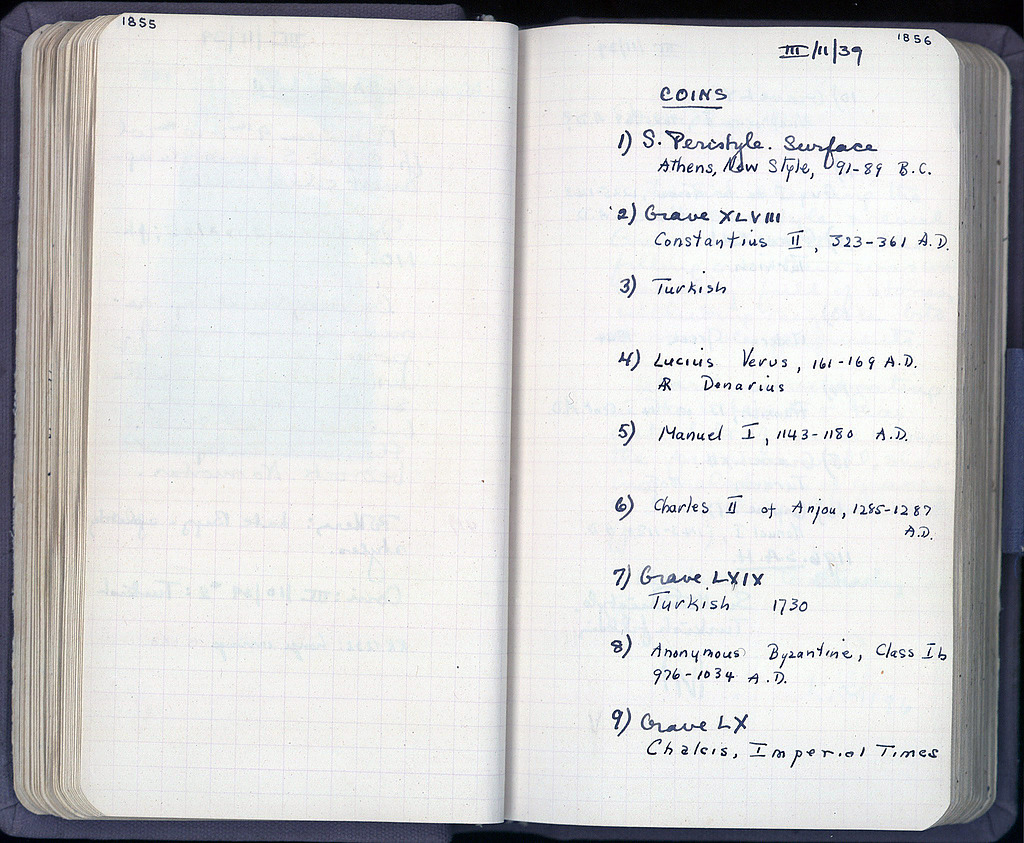 1855
1856
III/11/39
COINS
1) S. Peristyle. Surface
Athens, New Style, 91-89 B.C.
2) Grave XLVIII
Constantius II, 323-361 A.D.
3) Turkish
4) Lucius Verus, 161-169 A.D.
AR Denarius
5) Manuel I, 1143-1180 A.D.
6) Charles II of Anjou, 1285-1287
A.D.
7) Grave LXIX
Turkish 1730
8) Anonymous Byzantine, Class Ib
976-1034 A.D.
9) Grave LX
Chalcis, Imperial Times